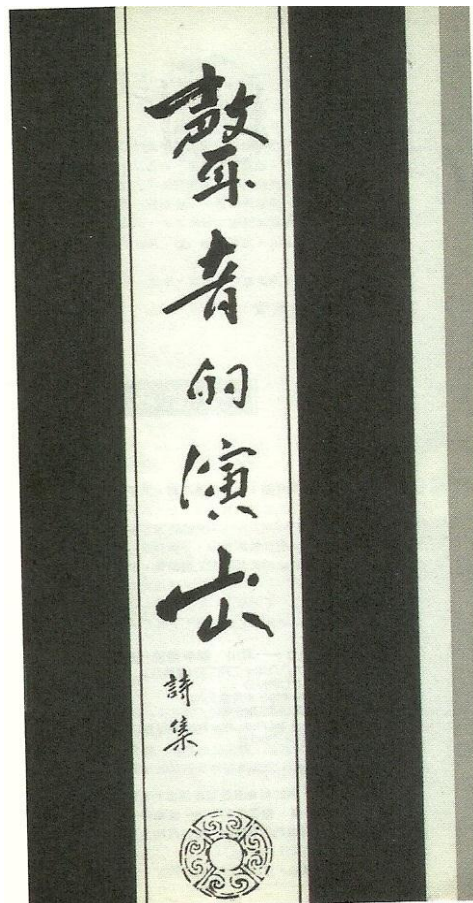 聲音的演出
詩集